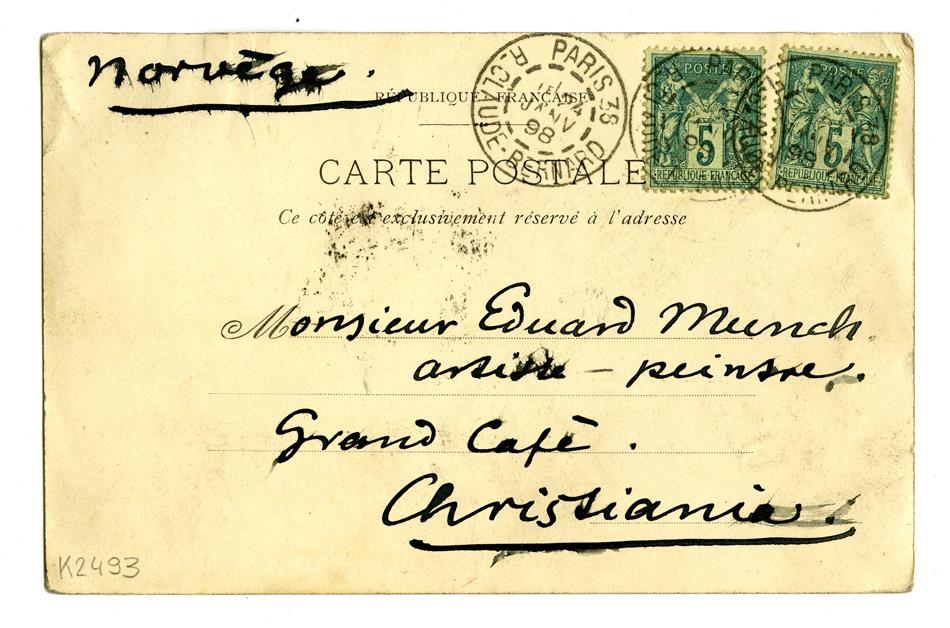 Norvège.
RÉPUBLIQUE FRANÇAISE
PARIS-38
R. CLAUDE-BERNARD
JANV
98
POSTE
5
REPUBLIQUE FRANÇAISE
POSTE
5
REPUBLIQUE FRANÇAISE
CARTE POSTALE
Ce côté est exclusivement réservé à l'adresse
Monsieur Eduard Munch.
artiste - peintre.
Grand Café.
Christiania.
K2493